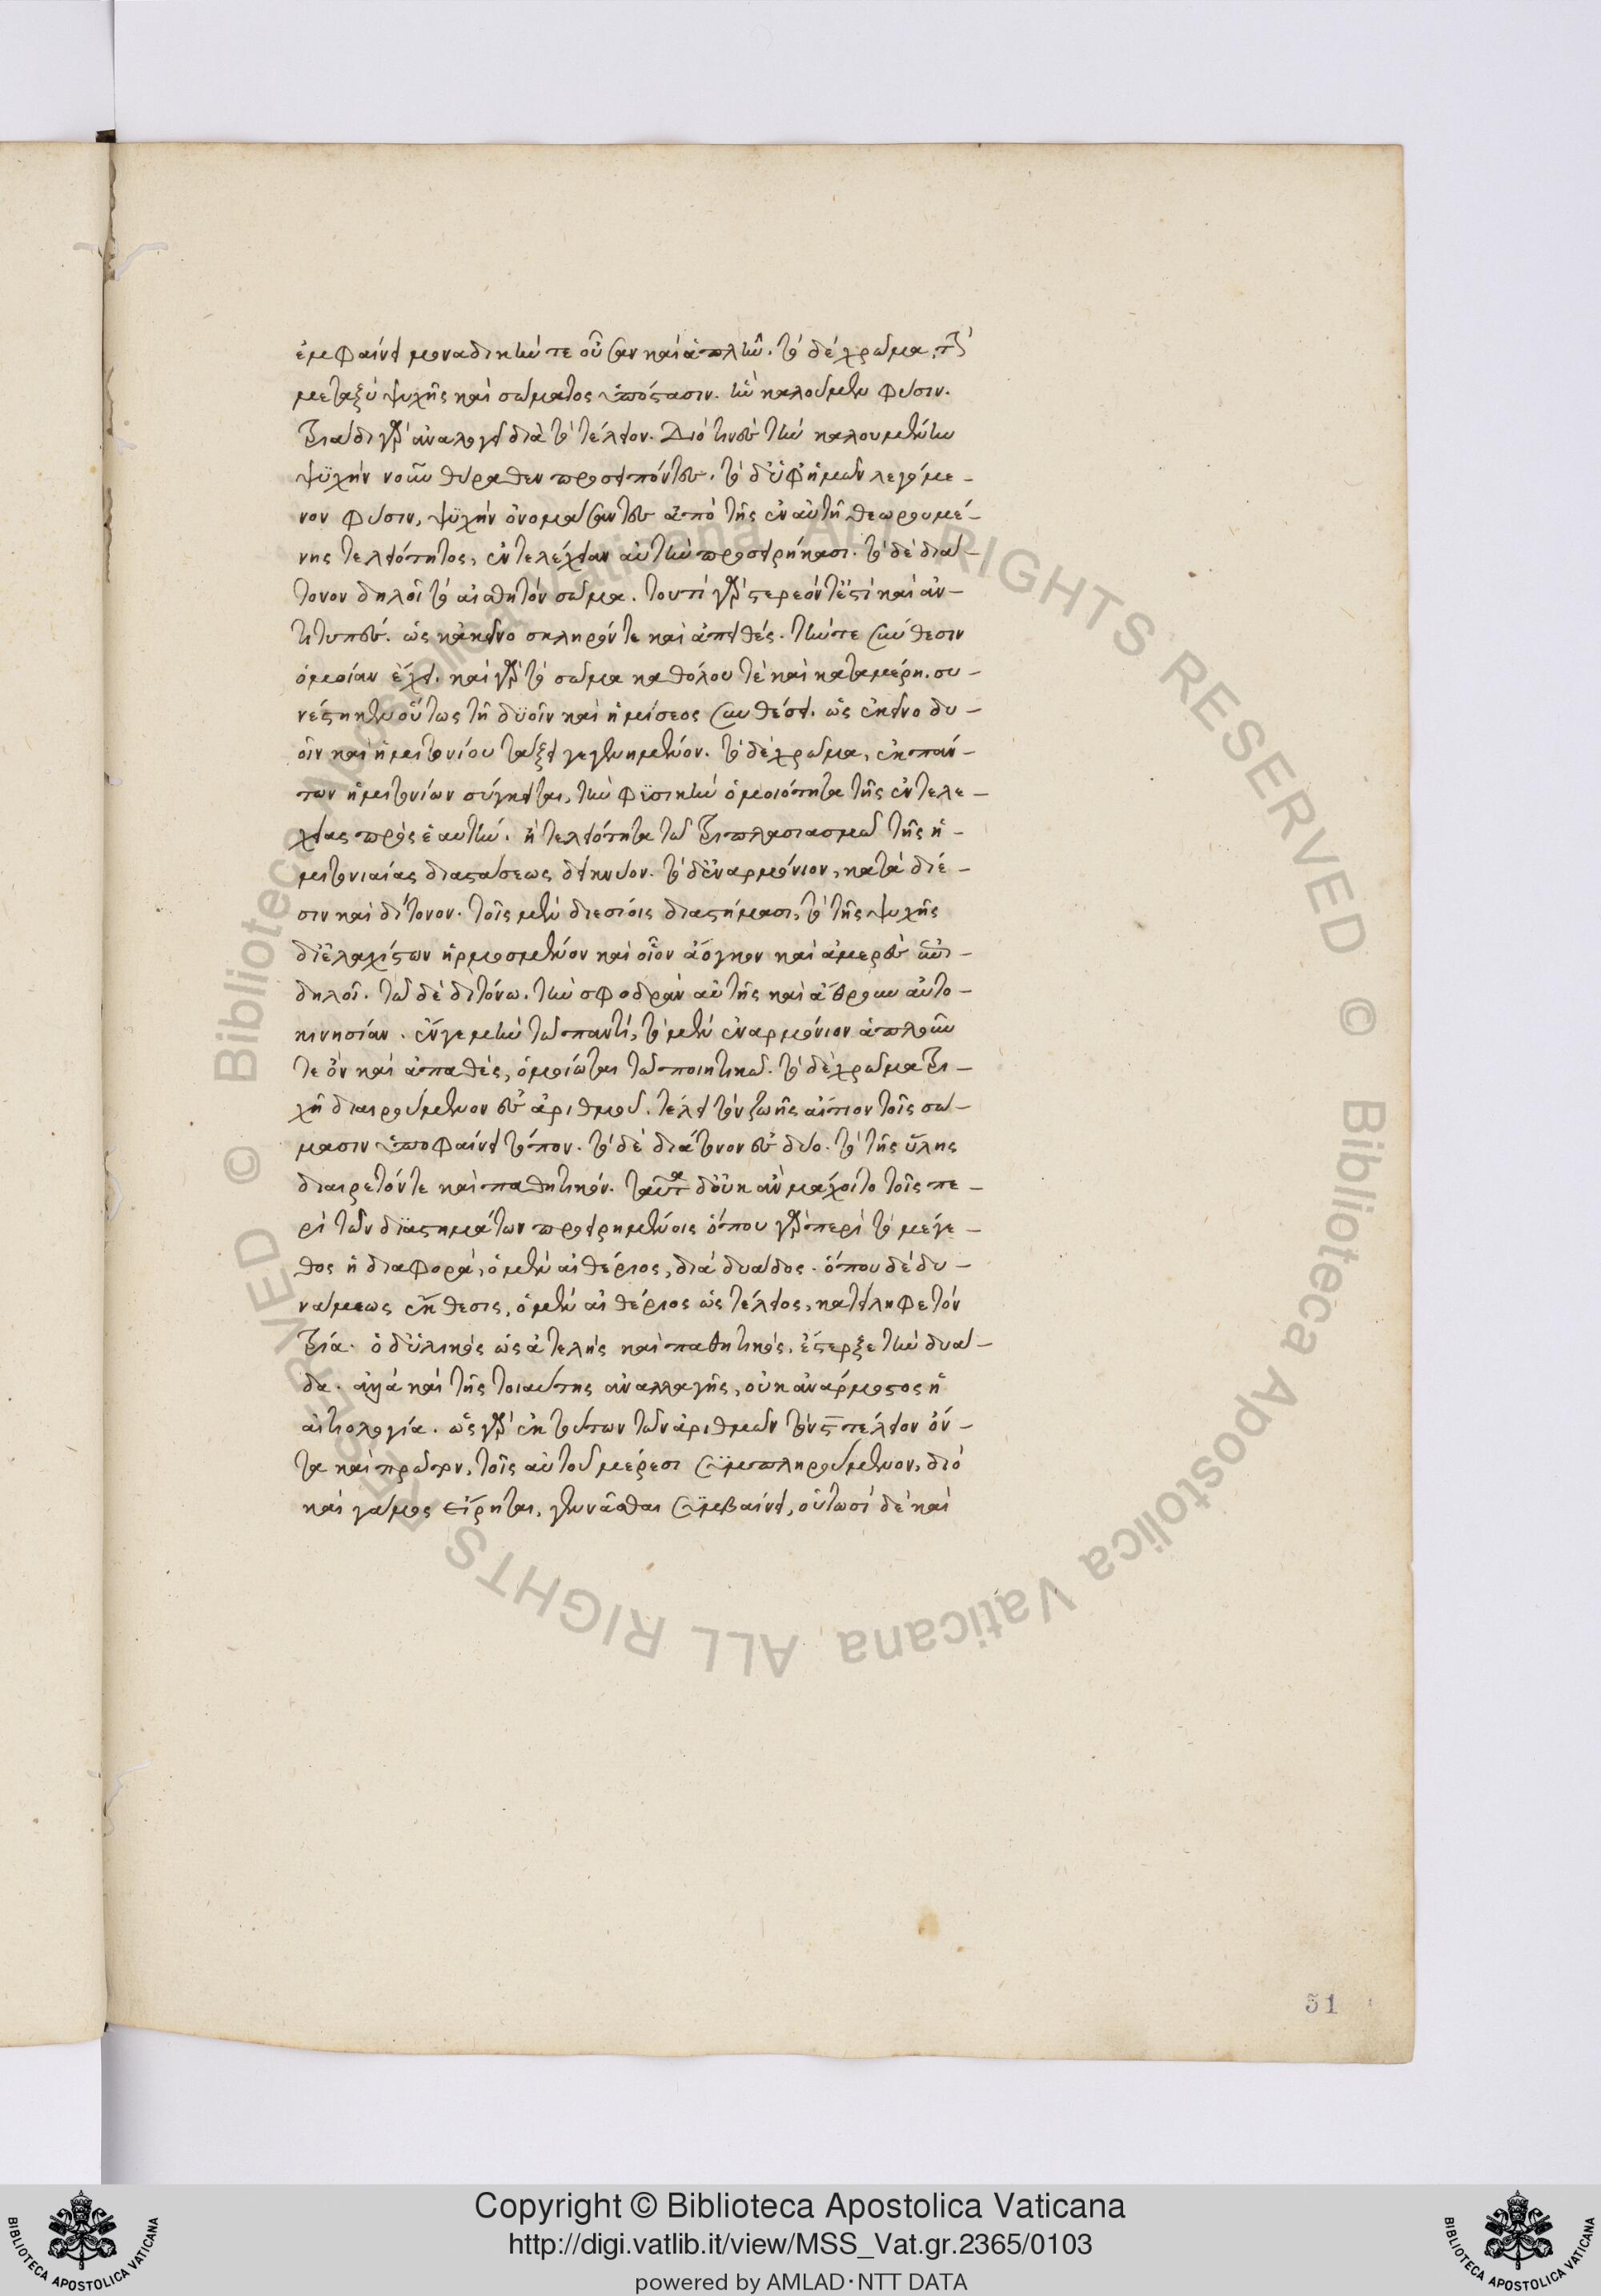 ἐμφαίνει μοναδικήν τε οὖσαν καὶ ἁπλῆν. τὸ δὲ χρῶμα, τὴν
μεταξὺ ψυχῆς καὶ σώματος ὑπόστασιν. ἣν καλοῦμεν φύσιν.
τριάδι γὰρ ἀναλογεῖ διὰ τὸ τέλειον. Διό τινες τὴν καλουμένην
ψυχὴν νοῦν θύραθεν προσειπόντες. τὸ δ' ὑφ' ἡμῶν λεγόμε-
νον φύσιν, ψυχὴν ὀνομάσαντες ἀπὸ τῆς ἐν αὐτῇ θεωρουμέ-
νης τελειότητος, ἐντελέχειαν αὐτὴν προσειρήκασι. τὸ δὲ διά-
τονον δηλοῖ τὸ αἰσθητὸν σῶμα. τουτὶ γὰρ στερεόν τέ ἐστι καὶ ἀν-
τιτυπές. ὡς κἀκεῖνο σκληρόν τε καὶ ἀπειθές. τήν τε σύνθεσιν
ὁμοίαν ἔχει. καὶ γὰρ τὸ σῶμα καθόλου τὲ καὶ καταμέρη. συ-
νέστηκεν οὕτως τῇ δυοῖν καὶ ἡμίσεος συνθέσει. ὡς ἐκεῖνο δυ-
οῖν καὶ ἡμιτονίου τάξει γεγενημένον. τὸ δὲ χρῶμα, ἐκ πάν-
των ἡμιτονίων σύγκειται, τὴν φυσικὴν ὁμοιότητα τῆς ἐντελε-
χείας πρὸς ἑαυτήν. ἢ τελειότητα τῷ τριπλασιασμῷ τῆς ἡ-
μιτονιαίας διαστάσεως δεικνύον. τὸ δ' ἐναρμόνιον, κατὰ διέ-
σιν καὶ δίτονον. τοῖς μὲν διεσίοις διαστήμασι, τὸ τῆς ψυχῆς
δι' ἐλαχίστων ἡρμοσμένον καὶ οἷον ἄογκον καὶ ἀμερὲς
δηλοῖ. τῷ δὲ διτόνω. τὴν σφοδρὰν αὐτῆς καὶ ἄθρουν αὐτο-
κινησίαν. ἔν γε μὴν τῷ παντὶ, τὸ μὲν ἐναρμόνιον ἁπλοῦν
τε ὂν καὶ ἀπαθὲς, ὁμοίωται τῷ ποιητικῷ. τὸ δὲ χρῶμα τρι-
χῇ διαιρούμενον ἐς ἀριθμοῦ. τέλει τὸν ζωῆς αἴτιον τοῖς σώ-
μασιν ὑποφαίνει τόπον. τὸ δὲ διάτονον ἐς δύο. τὸ τῆς ὕλης
διαιρετόν τε καὶ παθητικόν. ταῦτα δ' οὐκ ἂν μάχοιτο τοῖς πε-
ρὶ τῶν διαστημάτων προειρημένοις ὅπου γὰρ περὶ τὸ μέγε-
θος ἡ διαφορά, ὁ μὲν αἰθέριος, διὰ δυάδος. ὅπου δὲ δυ-
νάμεως ἔκθεσις, ὁ μὲν αἰθέριος ὡς τέλειος, κατείληφε τὸν
τρία. ὁ δ' ὑλικὸς ὡς ἀτελὴς καὶ παθητικός, ἔστερξε τὴν δυά-
δα. ἀλλὰ καὶ τῆς τοιαύτης ἀναλλαγῆς, οὐκ ἀνάρμοστος ἡ
αἰτιολογία. ὡς γὰρ ἐκ τούτων τῶν ἀριθμῶν τὸν ς τέλειον ὄν-
τα καὶ πρῶτον, τοῖς αὐτοῦ μέρεσι συμπληρούμενον, διὸ
καὶ γάμος εἴρηται, γεννᾶσθαι συμβαίνει, οὑτωσὶ δὲ καὶ
51
© Biblioteca Apostolica Vaticana ALL RIGHTS RESERVED © Biblioteca Apostolica Vaticana ALL RIGHTS RESERVED
Copyright © Biblioteca Apostolica Vaticana
http://digi.vatlib.it/view/MSS_Vat.gr.2365/0103
powered by AMLAD·NTT DATA
BIBLIOTECA APOSTOLICA VATICANA
BIBLIOTECA APOSTOLICA VATICANA